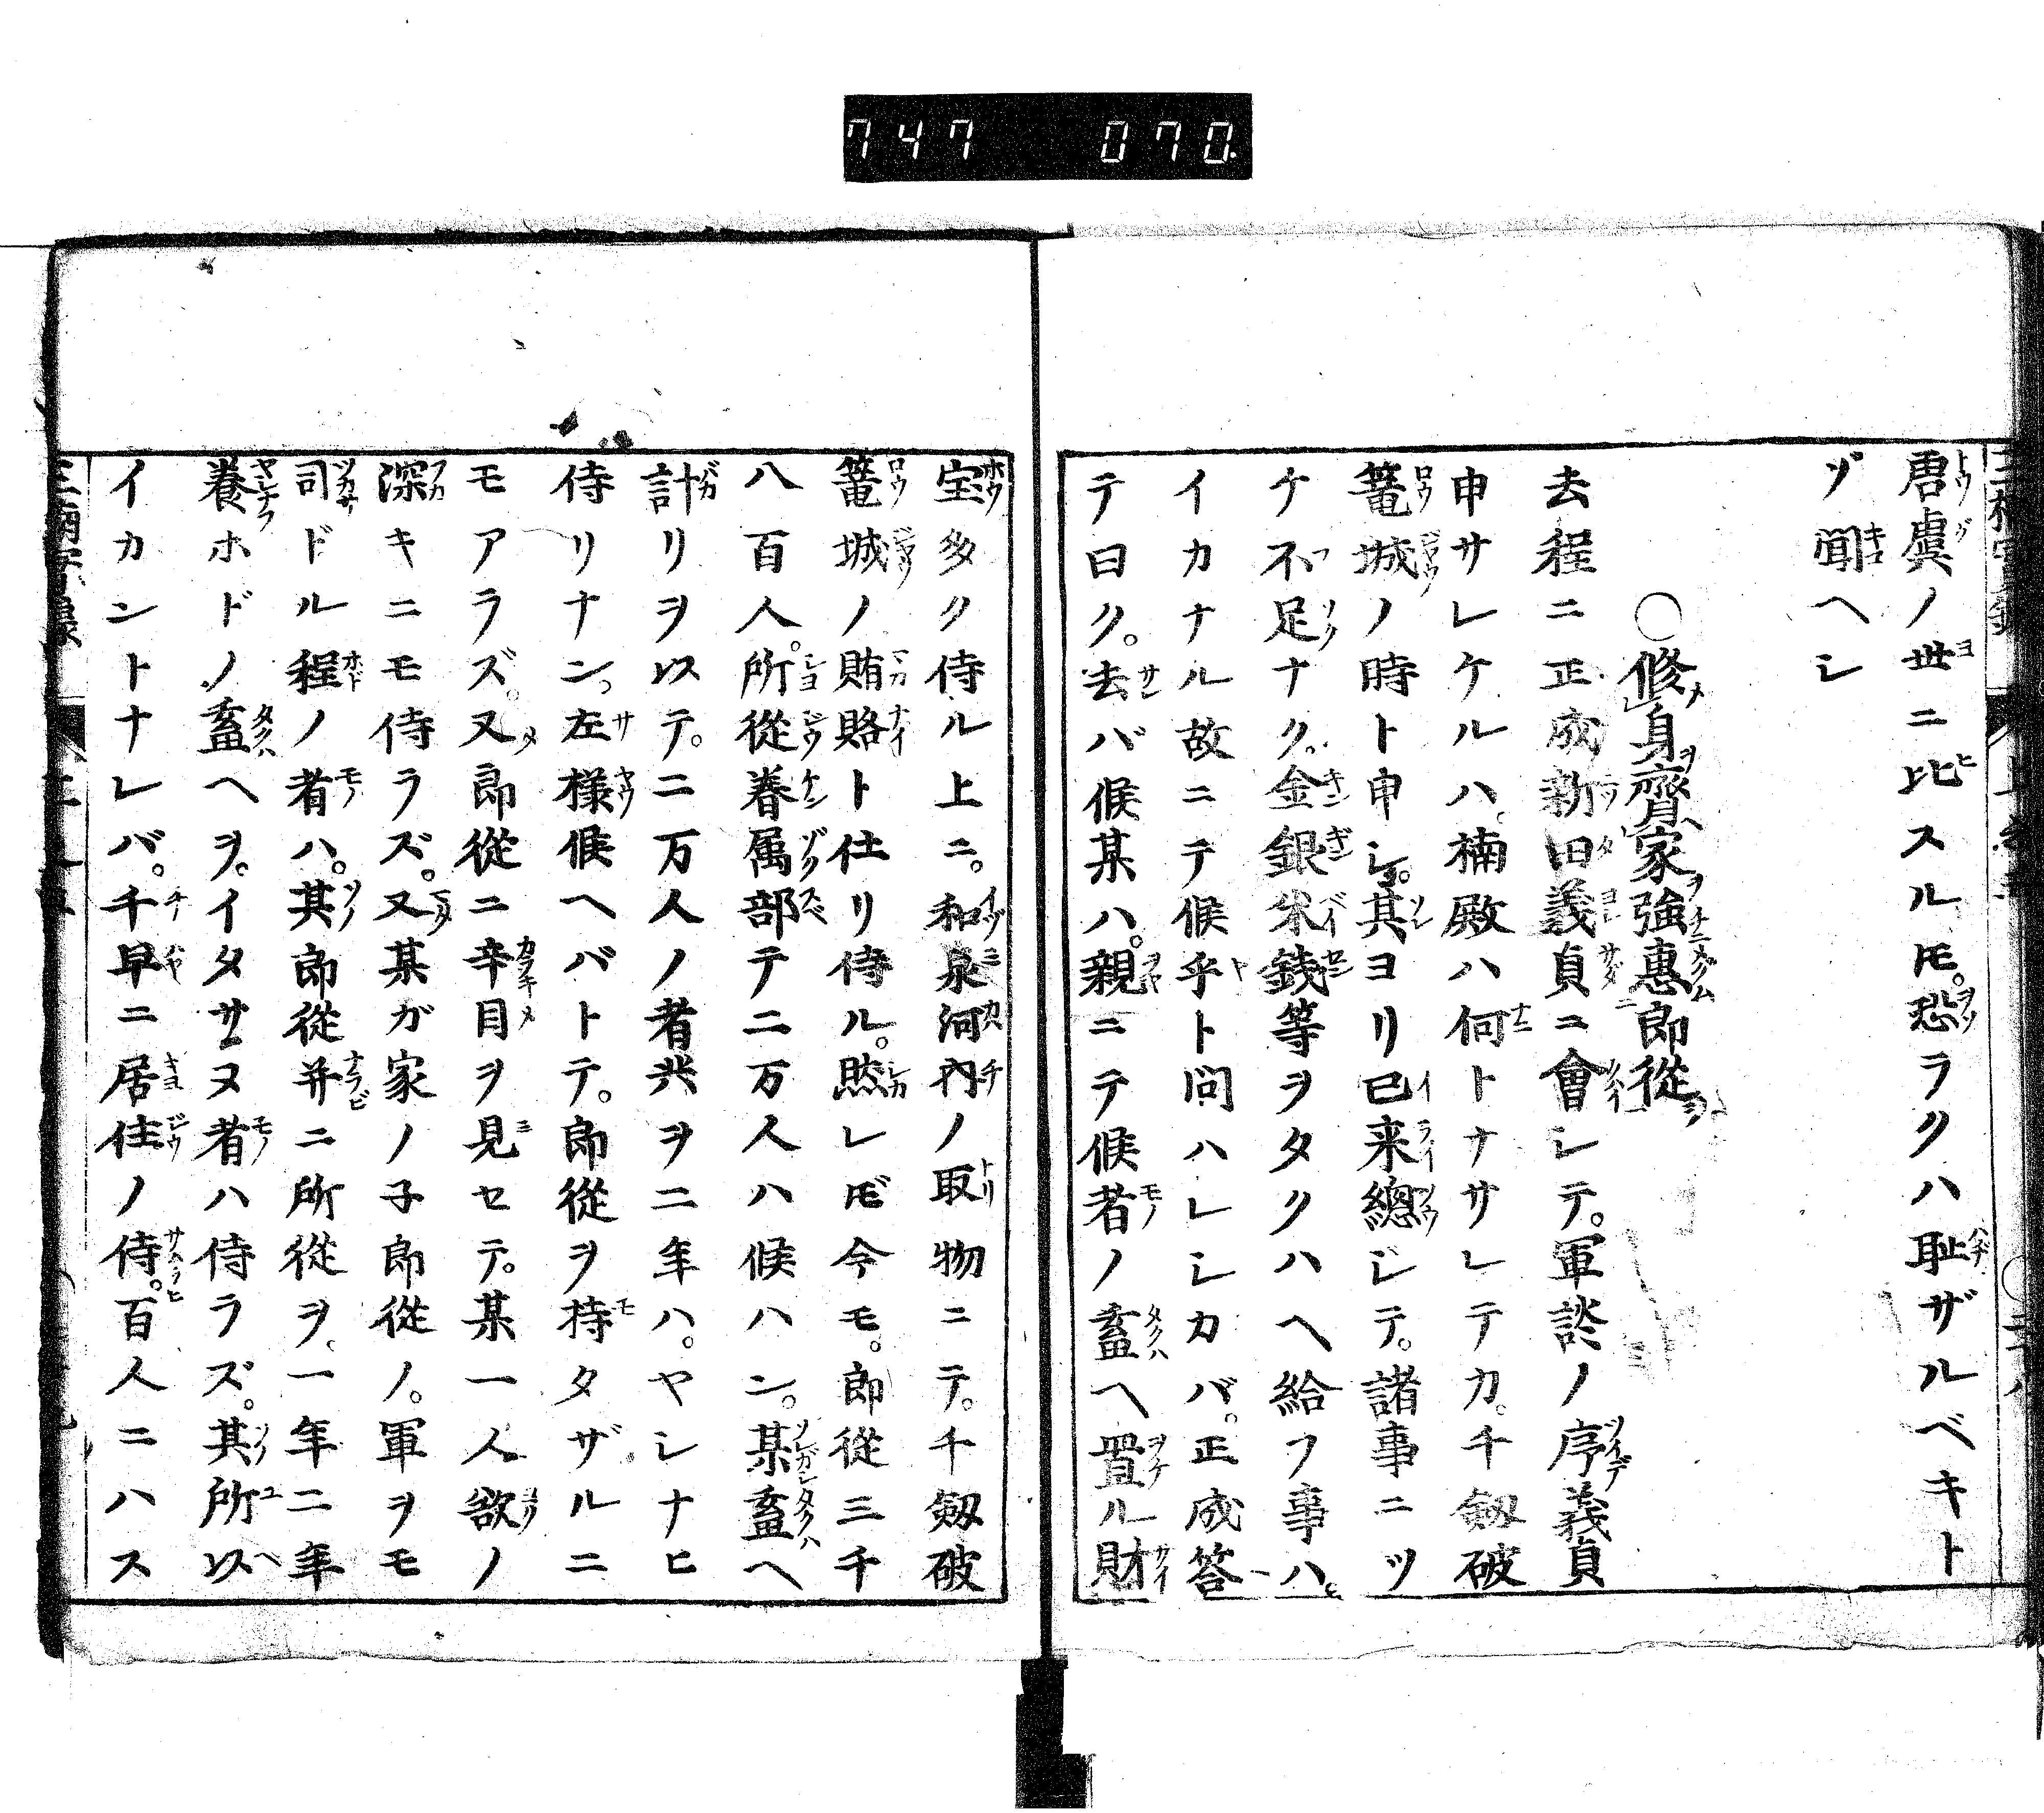 747 070.
唐虞ノ世ニ比スルモ。恐ラクハ耻ザルベキト
ゾ聞ヘシ
○修身齊家強惠郎從
去程ニ正成新田義貞ニ會シテ。軍談ノ序義貞
申サレケルハ。楠殿ハ何トナサレテカ。千劔破
篭城ノ時ト申シ。其ヨリ已来總ジテ。諸事ニツ
ケ不足ナク。金銀米銭等ヲタクハヘ給フ事ハ。
イカナル故ニテ候乎ト問ハレシカバ。正成答
テ曰ク。去バ候某ハ。親ニテ候者ノ蓄ヘ置ル財
宝多ク侍ル上ニ。和泉河内ノ取物ニテ。千劔破
篭城ノ賄賂ト仕リ侍ル。然レドモ今モ。郎從三千
八百人。所從眷属部テ二万人ハ候ハン。某蓄ヘ
計リヲ以テ。二万人ノ者共ヲ二年ハ。ヤシナヒ
侍リナン。左様候ヘバトテ。郎從ヲ持タザルニ
モアラズ。又郎從ニ辛目ヲ見セテ。某一人欲ノ
深キニモ侍ラズ。又某ガ家ノ子郎從ノ。軍ヲモ
司ドル程ノ者ハ。其郎從并ニ所從ヲ。一年二年
養ホドノ蓄ヘヲ。イタサヌ者ハ侍ラズ。其所以
イカントナレバ。千早ニ居住ノ侍。百人ニハス